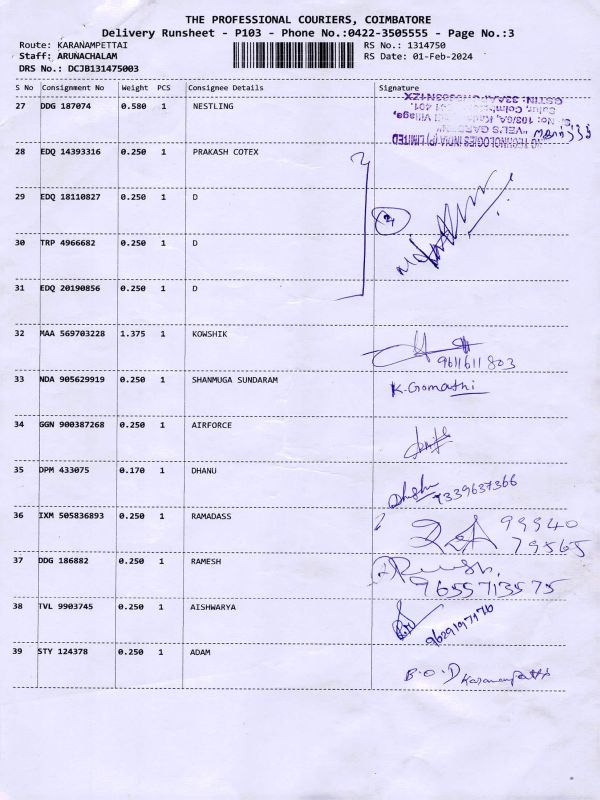 THE PROFESSIONAL COURIERS, COIMBATORE
Delivery Runsheet - P103 - Phone No.:0422-3505555 - Page No.:3
Route: KARANAMPETTAI
RS No.: 1314750
Staff: ARUNACHALAM
RS Date: 01-Feb-2024
DRS No.: DCJB131475003
S No Consignment No Weight PCS Consignee Details Signature
27 DDG 187074 0.580 1 NESTLING
TECHNOLOGIES INDIA (P) LIMITED
"VEL'S GARDEN"
28 EDQ 14393316 0.250 1 PRAKASH COTEX
29 EDQ 18110827 0.250 1 D
30 TRP 4966682 0.250 1 D
31 EDQ 20190856 0.250 1 D
32 MAA 569703228 1.375 1 KOWSHIK
9611611803
33 NDA 905629919 0.250 1 SHANMUGA SUNDARAM K.Gomathi
34 GGN 900387268 0.250 1 AIRFORCE
35 DPM 433075 0.170 1 DHANU
9339637366
36 IXM 505836893 0.250 1 RAMADASS 99940
79565
37 DDG 186882 0.250 1 RAMESH
9655713575
38 TVL 9903745 0.250 1 AISHWARYA
9629197176
39 STY 124378 0.250 1 ADAM
B.O.D